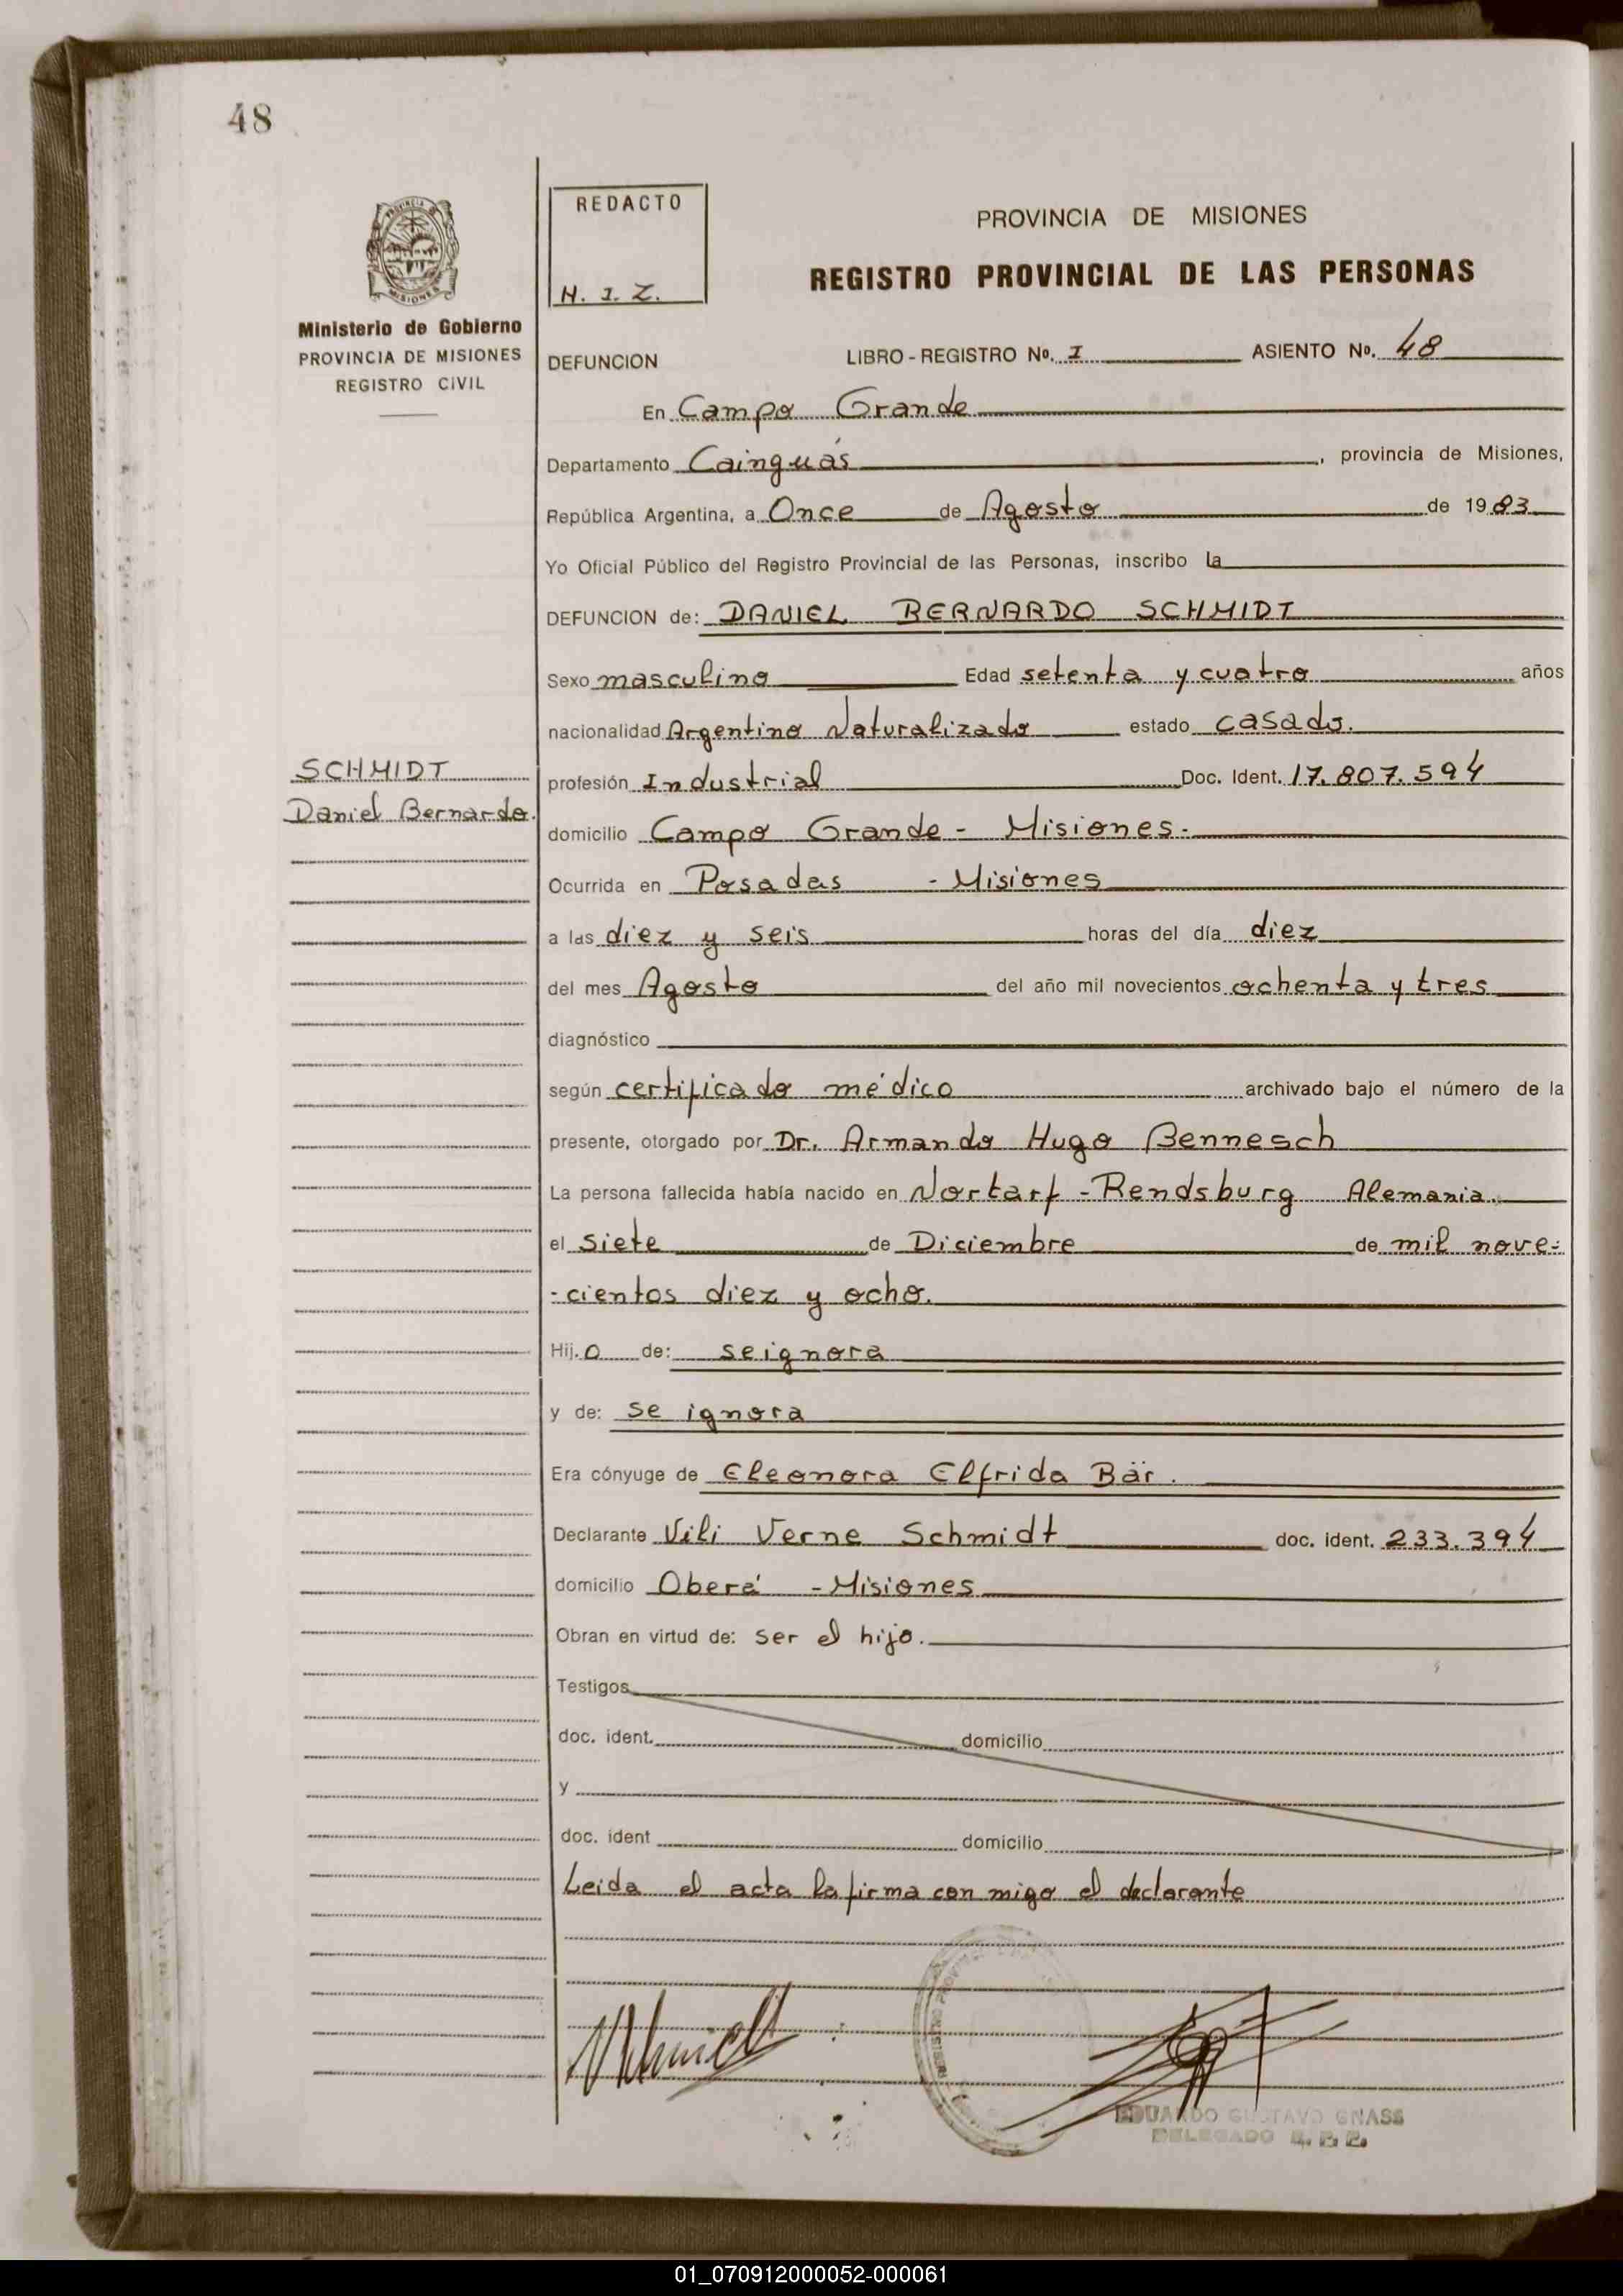 48
PROVINCIA DE MISIONES
Ministerio de Gobierno
PROVINCIA DE MISIONES
REGISTRO CIVIL
REDACTO
H. I. Z.
PROVINCIA DE MISIONES
REGISTRO PROVINCIAL DE LAS PERSONAS
DEFUNCION LIBRO - REGISTRO No. I ASIENTO No. 48
En Campo Grande
Departamento Cainguás, provincia de Misiones,
República Argentina, a Once de Agosto de 1983
Yo Oficial Público del Registro Provincial de las Personas, inscribo la
DEFUNCION de: DANIEL BERNARDO SCHMIDT
Sexo masculino Edad setenta y cuatro años
nacionalidad Argentino Naturalizado estado casado.
SCHMIDT
Daniel Bernardo.
profesión Industrial Doc. Ident. 17.807.594
domicilio Campo Grande - Misiones.-
Ocurrida en Posadas - Misiones
a las diez y seis horas del día diez
del mes Agosto del año mil novecientos ochenta y tres
diagnóstico
según certificado médico archivado bajo el número de la
presente, otorgado por Dr. Armando Hugo Bennesch
La persona fallecida había nacido en Nortarf - Rendsburg Alemania.
el siete de Diciembre de mil nove-
-cientos diez y ocho.
Hij.o de: seignora
y de: se ignora
Era cónyuge de Eleonora Elfrida Bär.
Declarante Vili Verne Schmidt doc. ident. 233.394
domicilio Oberá - Misiones
Obran en virtud de: ser el hijo.
Testigos
doc. ident. domicilio
y
doc. ident domicilio
Leida el acta la firma con migo el declarante
EDUARDO GUSTAVO GNASS
DELEGADO R. P. P.
01_070912000052-000061